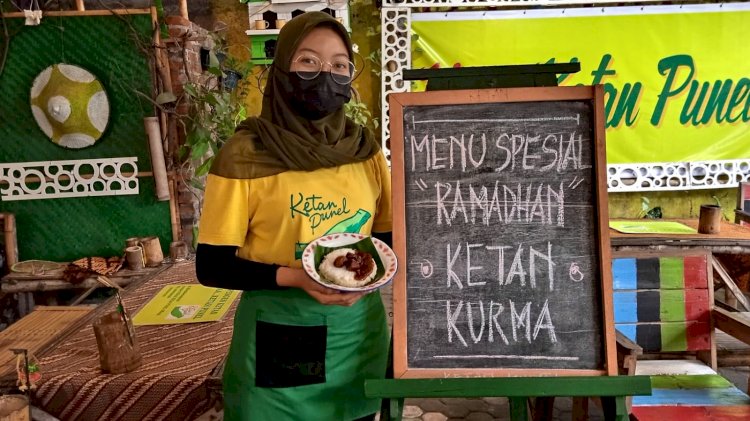 Ketan Punel
Ketan
Punel
MENU SPESIAL
"RAMADHAN"
KETAN
KURMA